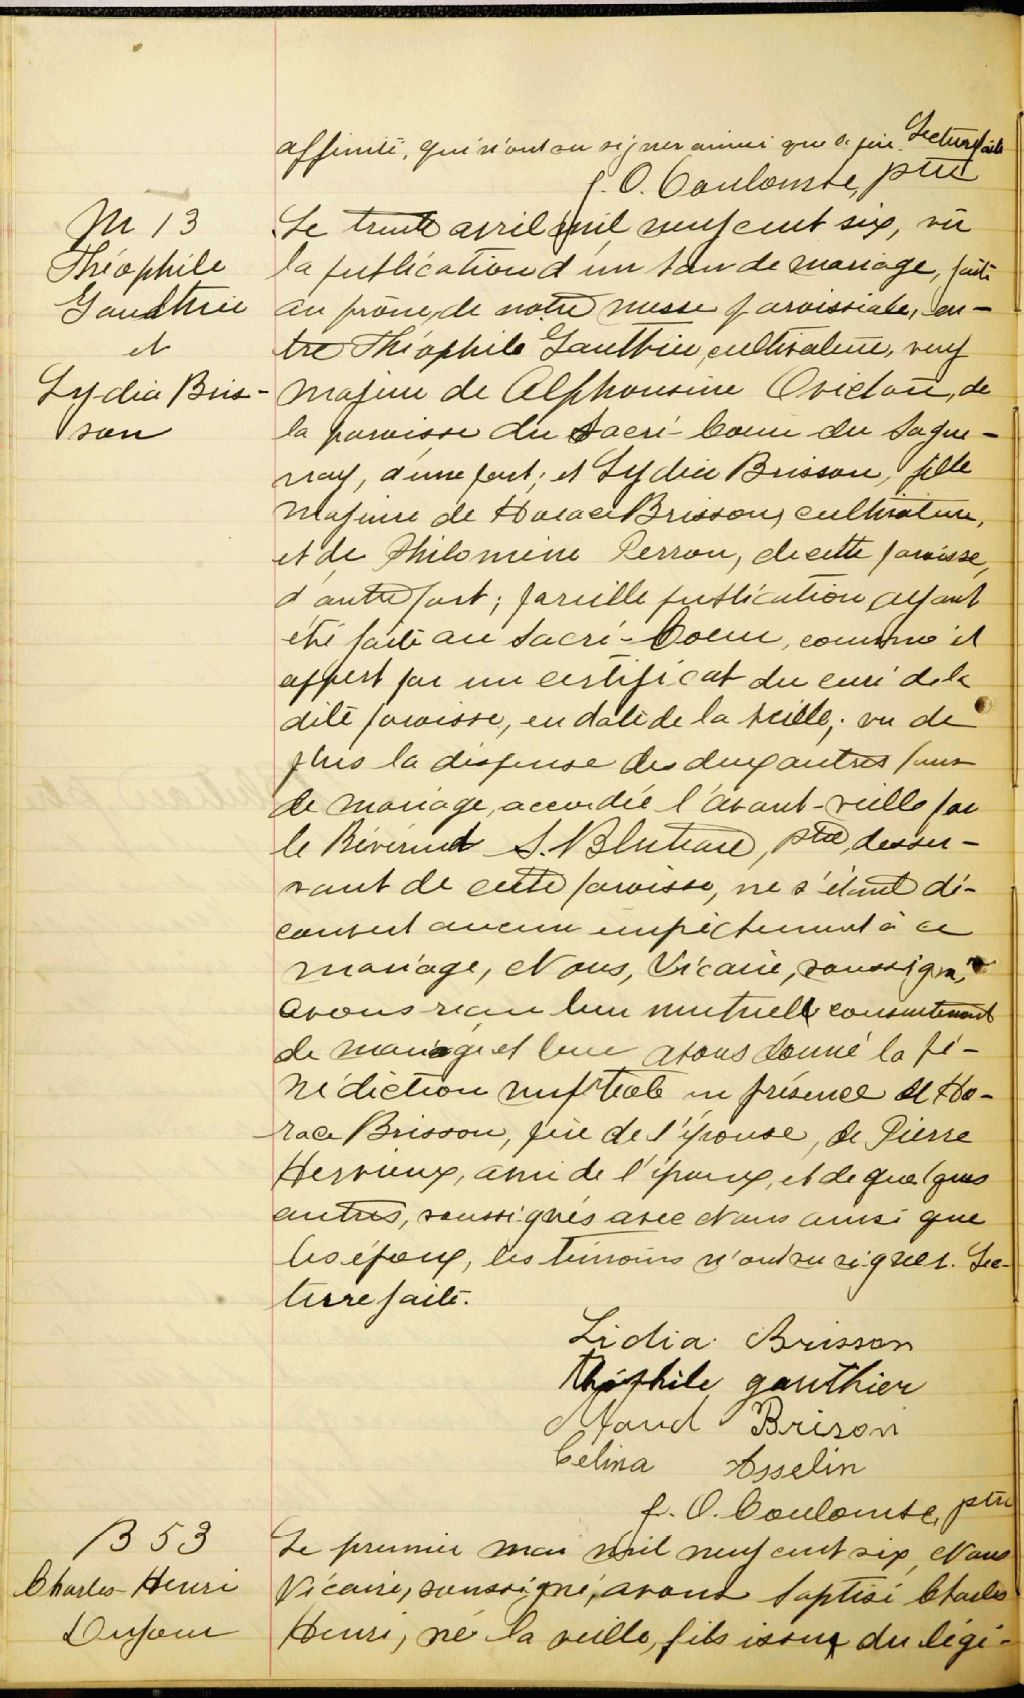 affinité, qui n'ont su signer ainsi que le père. Lecture faite
J. O. Coulombe, ptre
M 13
Théophile
Gauthier
et
Lydia Bris-
son
Le trente avril mil neuf cent six, vu
la publication d'un ban de mariage, faite
au prône de notre messe paroissiale, en-
tre Théophile Gauthier, cultivateur, veuf
majeur de Alphonsine Ouellet, de
la paroisse du Sacré-Coeur du Sague-
nay, d'une part; et Lydia Brisson, fille
majeure de Horace Brisson, cultivateur,
et de Philomène Perron, de cette paroisse,
d'autre part; pareille publication ayant
été faite au Sacré-Coeur, comme il
appert par un certificat du curé de la
dite paroisse, en date de la veille; vu de
plus la dispense des deux autres bans
de mariage, accordée l'avant-veille par
le Révérend S. Bluteau, ptre, desser-
vant de cette paroisse, ne s'étant dé-
couvert aucun empêchement à ce
mariage, Nous, Vicaire, soussigné,
avons reçu leur mutuel consentement
de mariage et leur avons donné la bé-
nédiction nuptiale en présence de Ho-
race Brisson, père de l'épouse, de Pierre
Hervieux, ami de l'époux, et de quelques
autres, soussignés avec Nous ainsi que
les époux, les témoins n'ont su signer. Lec-
ture faite.
Lidia Brisson
Théophile gauthier
Maud Brison
Célina Asselin
J. O. Coulombe, ptre
B 53
Charles-Henri
Dufour
Le premier mai mil neuf cent six, Nous
Vicaire, soussigné, avons baptisé Charles
Henri, né la veille, fils issu du légi-